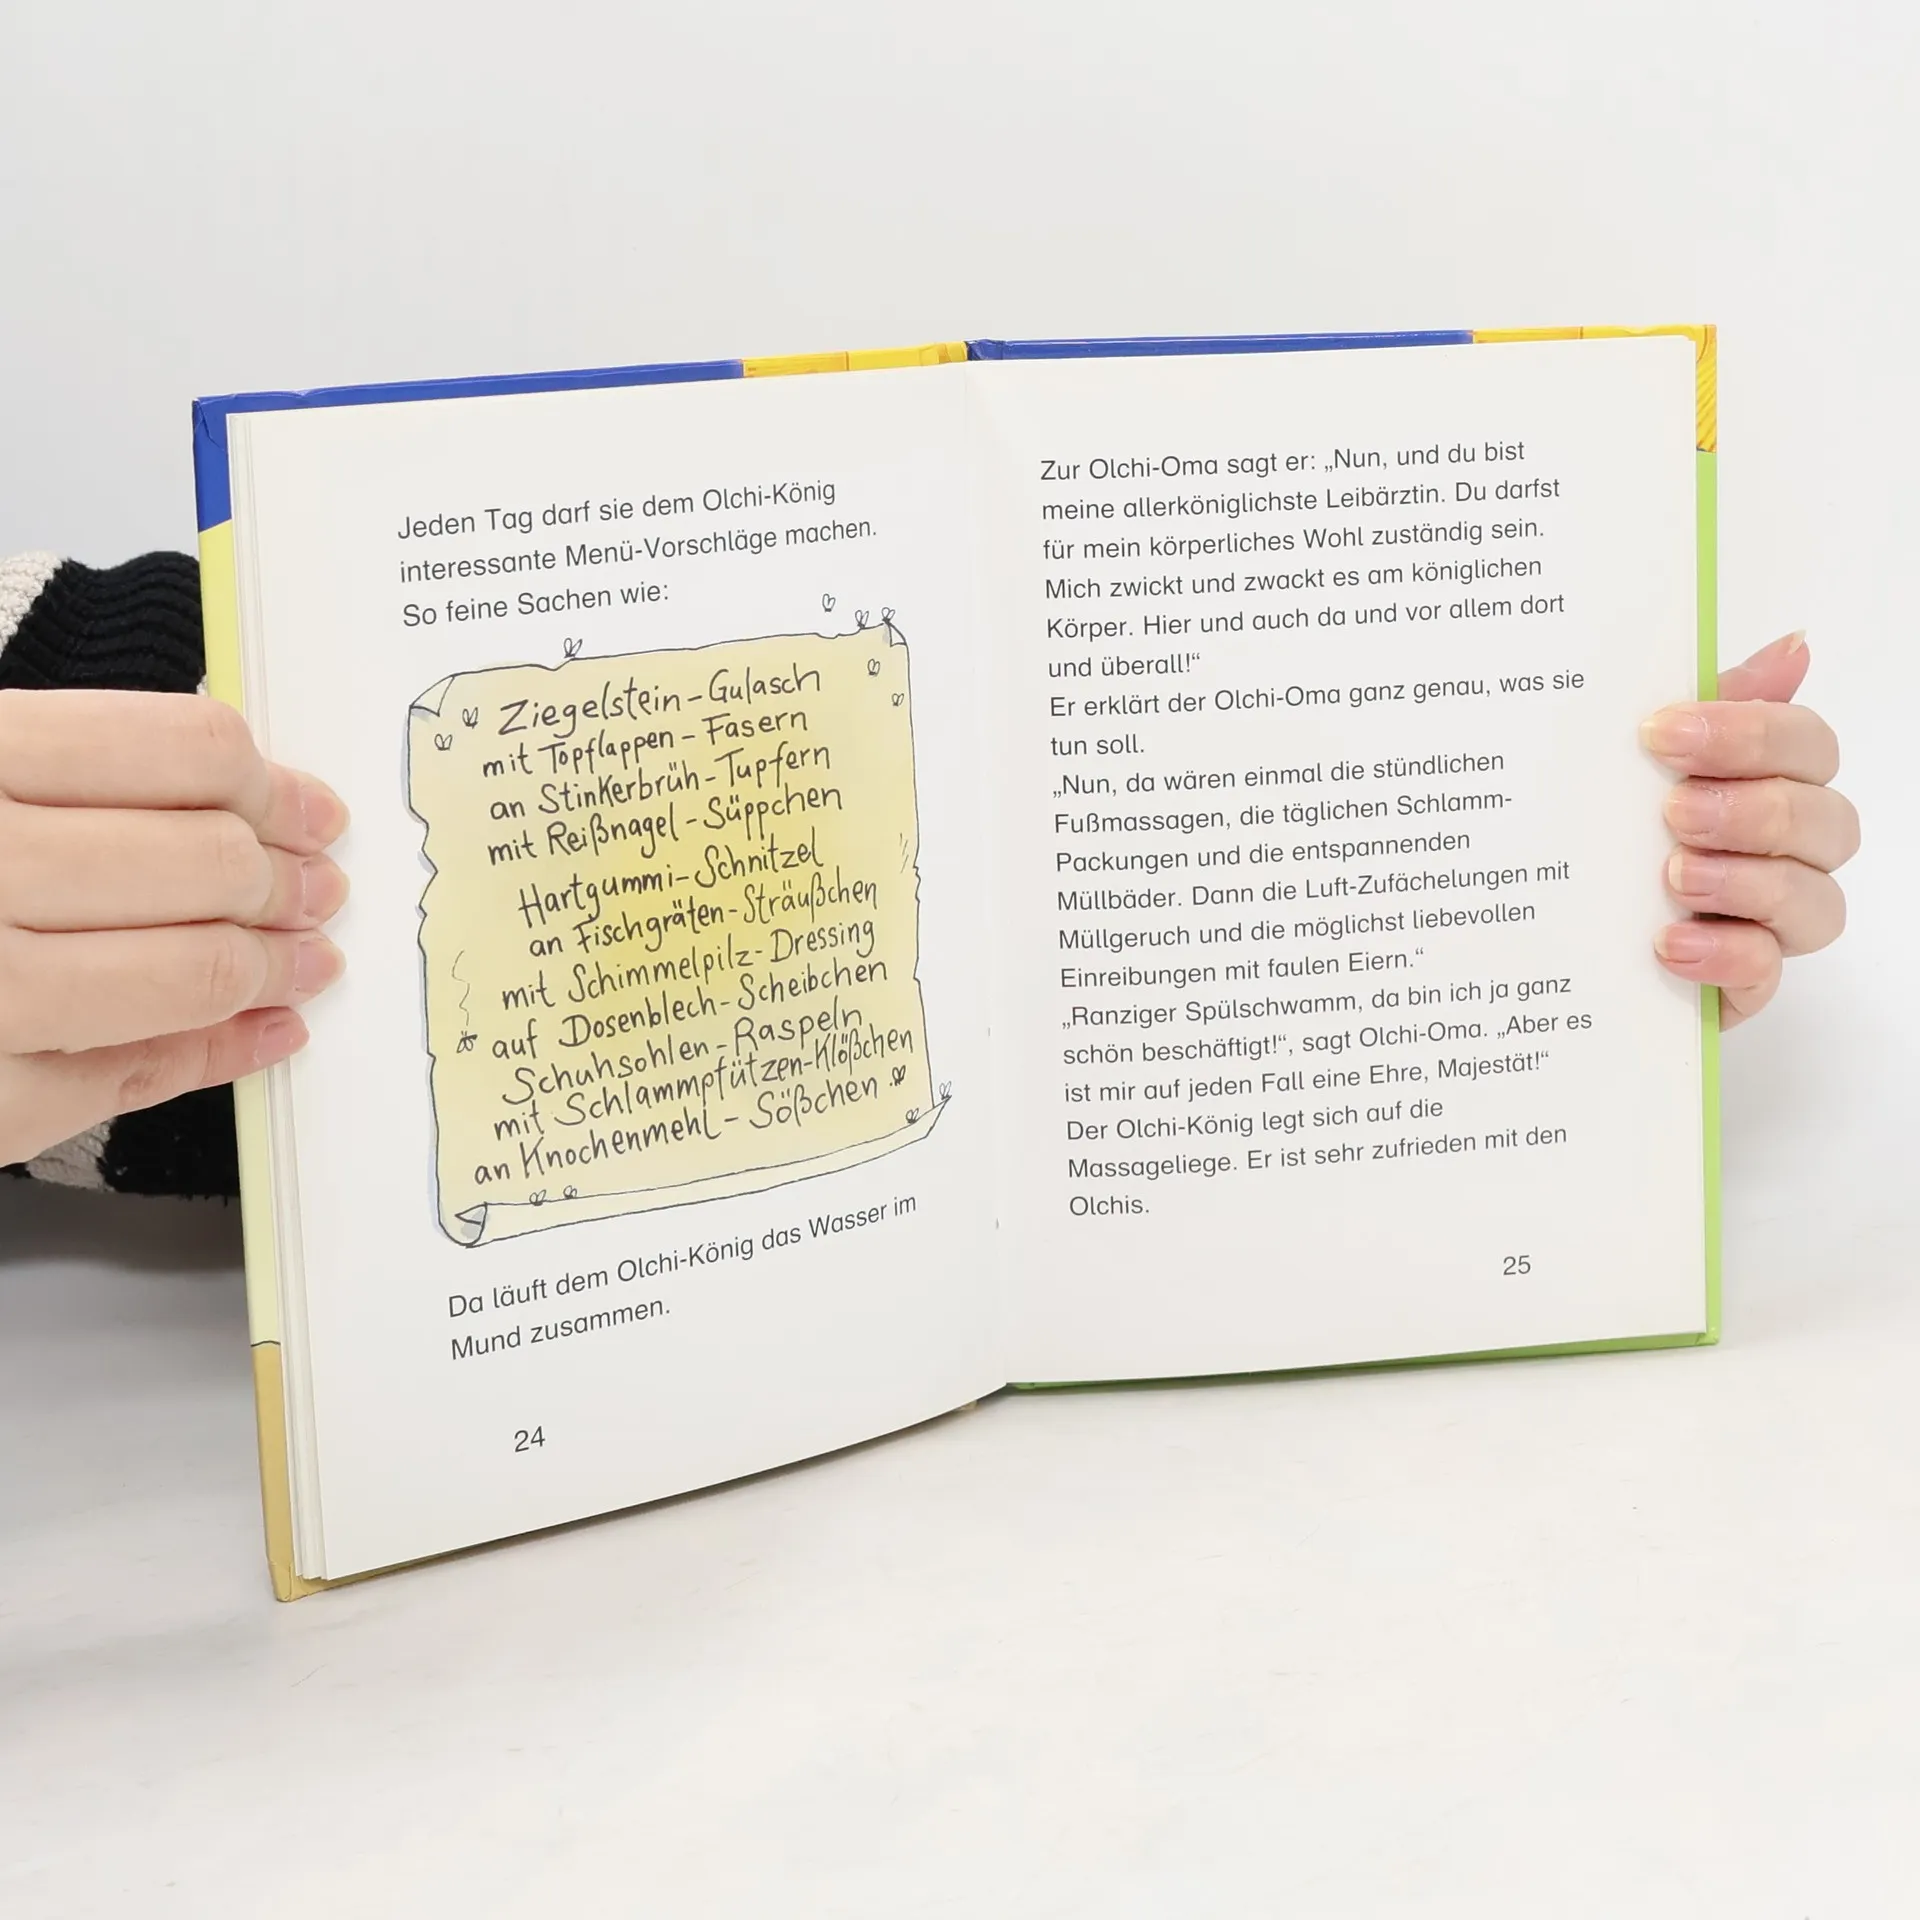 Jeden Tag darf sie dem Olchi-König
interessante Menü-Vorschläge machen.
So feine Sachen wie:
Ziegelstein-Gulasch
mit Topflappen-Fasern
an Stinkerbrüh-Tupfern
mit Reißnagel-Süppchen
Hartgummi-Schnitzel
an Fischgräten-Sträußchen
mit Schimmelpilz-Dressing
auf Dosenblech-Scheibchen
Schuhsohlen-Raspeln
mit Schlammpfützen-Klößchen
an Knochenmehl-Sößchen
Da läuft dem Olchi-König das Wasser im
Mund zusammen.
24
Zur Olchi-Oma sagt er: „Nun, und du bist
meine allerköniglichste Leibärztin. Du darfst
für mein körperliches Wohl zuständig sein.
Mich zwickt und zwackt es am königlichen
Körper. Hier und auch da und vor allem dort
und überall!“
Er erklärt der Olchi-Oma ganz genau, was sie
tun soll.
„Nun, da wären einmal die stündlichen
Fußmassagen, die täglichen Schlamm-
Packungen und die entspannenden
Müllbäder. Dann die Luft-Zufächelungen mit
Müllgeruch und die möglichst liebevollen
Einreibungen mit faulen Eiern.“
„Ranziger Spülschwamm, da bin ich ja ganz
schön beschäftigt!“, sagt Olchi-Oma. „Aber es
ist mir auf jeden Fall eine Ehre, Majestät!“
Der Olchi-König legt sich auf die
Massageliege. Er ist sehr zufrieden mit den
Olchis.
25